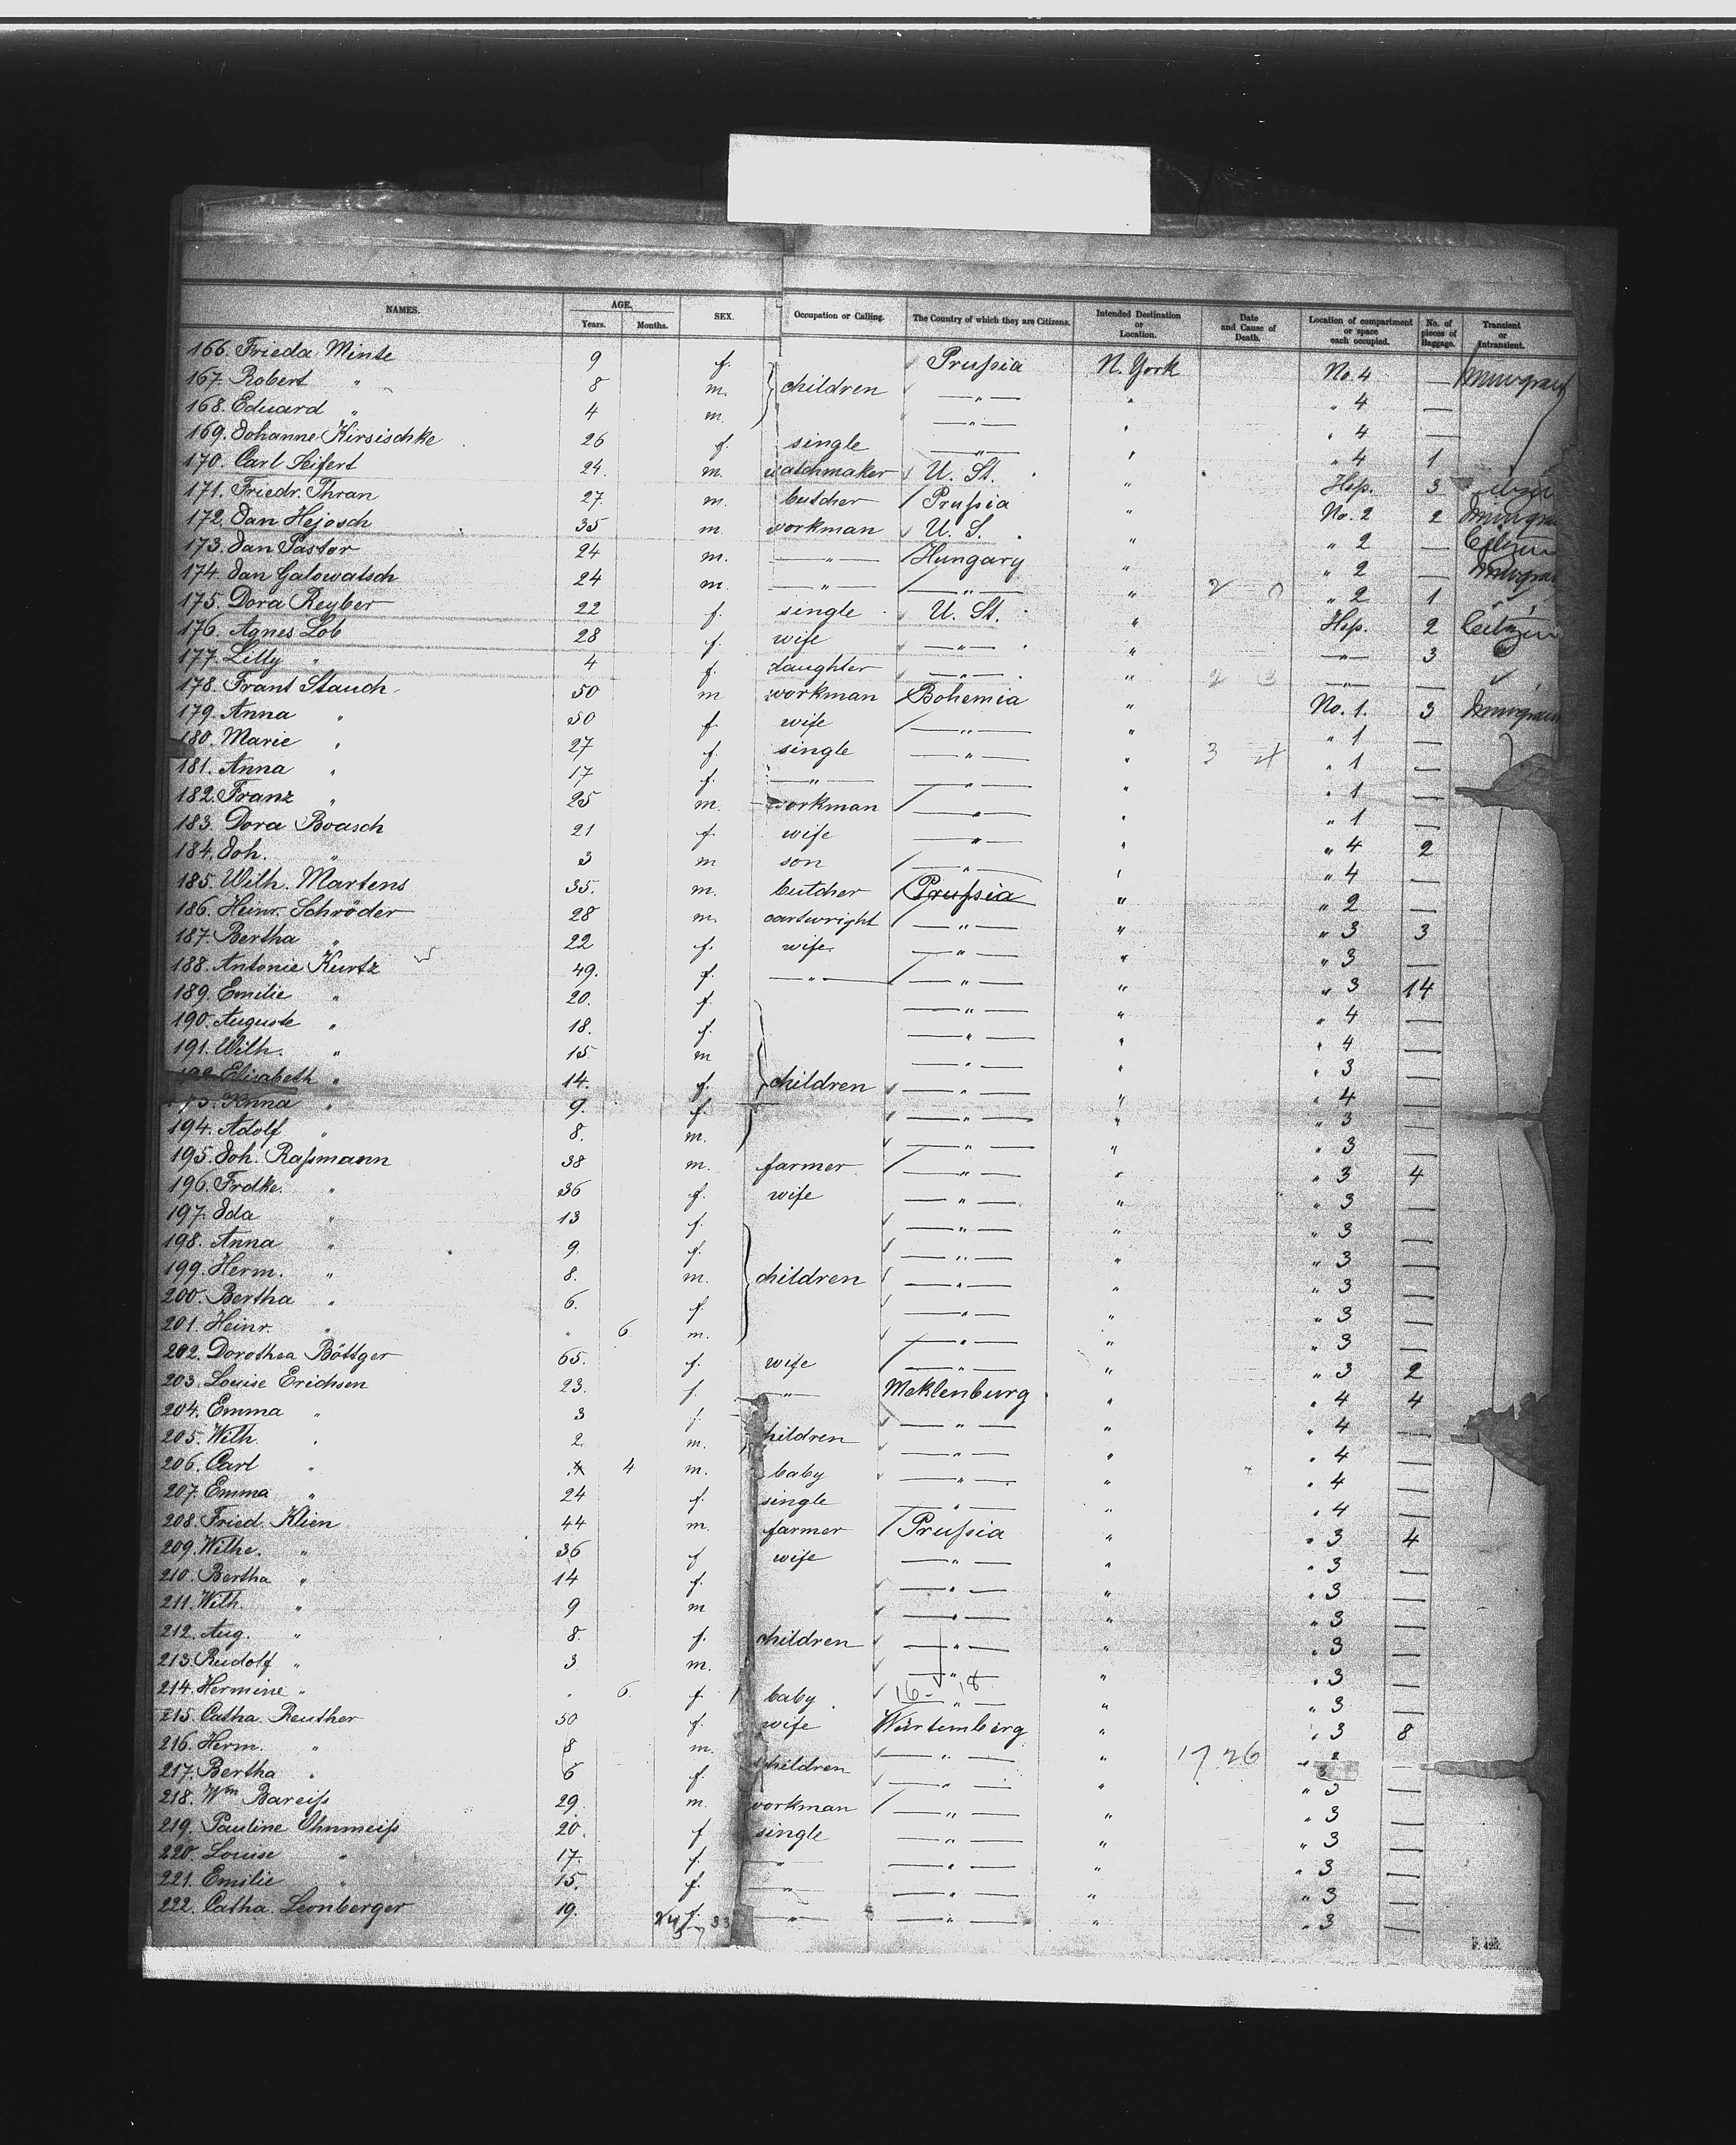 NAMES. AGE. Years. Months. SEX. Occupation or Calling. The Country of which they are Citizens. Intended Destination or Location. Date and Cause of Death. Location of compartment or space each occupied. No. of pieces of Baggage. Transient or Intransient.
166. Frieda Minte 9 f. Prußia N. York No. 4 —
167. Robert " 8 m. children —"— " " 4 —
168. Eduard " 4 m. —"— " " 4 —
169. Johanne Kirsischke 26 f. single —"— " " 4 1
170. Carl Seifert 24. m. watchmaker U. St. " Hsp. 3
171. Friedr. Thran 27 m. butcher Prußia " No. 2 2
172. Jan Hejosch 35 m. workman U. S. " " 2 — Citizen
173. Jan Pastor 24 m. —"— Hungary " " 2 —
174. Jan Galowatsch 24 m. —"— —"— " " 2 1 "
175. Dora Reyber 22 f. single U. St. " Hsp. 2 Citizen
176. Agnes Lob 28 f. wife —"— " —"— 3
177. Lilly " 4 f. daughter —"— " —"— —
178. Frant Stauch 50 m workman Bohemia " No. 1. 3
179. Anna " 50 f. wife —"— " " 1 —
180. Marie " 27 f. single —"— " " 1 —
181. Anna " 17 f. —"— —"— " " 1 —
182. Franz " 25 m. workman —"— " " 1 —
183. Dora Boasch 21 f. wife —"— " " 4 2
184. Joh. " 3 m son —"— " " 4 —
185. Wilh. Martens 35. m. butcher Prußia " " 2 —
186. Heinr. Schröder 28 m. cartwright —"— " " 3 3
187. Bertha " 22 f. wife —"— " " 3 —
188. Antonie Kurtz 49. f. —"— —"— " " 3 14
189. Emilie " 20. f. —"— " " 4 —
190. Auguste " 18. f. —"— " " 4 —
191. Wilh. " 15 m —"— " " 3 —
192. Elisabeth " 14. f. children —"— " " 4 —
193. Anna " 9. f. —"— " " 3 —
194. Adolf " 8. m. —"— " " 3 —
195. Joh. Raßmann 38 m. farmer —"— " " 3 4
196. Frdke. " 36 f. wife —"— " " 3 —
197. Ida " 13 f. —"— " " 3 —
198. Anna " 9. f. —"— " " 3 —
199. Herm. " 8. m. children —"— " " 3 —
200. Bertha " 6. f. —"— " " 3 —
201. Heinr. " " 6 m. —"— " " 3 —
202. Dorothea Böttger 65. f. wife —"— " " 3 2
203. Louise Erichsen 23. f. —"— Meklenburg " " 4 4
204. Emma " 3 f. —"— " " 4 —
205. Wilh. " 2. m. children —"— " " 4 —
206. Carl " 4 m. baby —"— " " 4 —
207. Emma " 24 f. single —"— " " 4 —
208. Fried. Klien 44 m. farmer Prußia " " 3 4
209. Wilhe. " 36 f wife —"— " " 3 —
210. Bertha " 14 f. —"— " " 3 —
211. Wilh. " 9 m —"— " " 3 —
212. Aug. " 8. f. children —"— " " 3 —
213. Rudolf " 3 m. —"— " " 3 —
214. Hermine " " 6. f. baby —"— " " 3 —
215. Catha. Reuther 30 f. wife Würtemberg " " 3 8
216. Herm. " 8 m. —"— " 17 26 —
217. Bertha " 6 f. children —"— " " 3 —
218. Wm Bareiß 29. m. workman —"— " " 3 —
219. Pauline Ohnmeiß 20. f single —"— " " 3 —
220. Louise " 17. f. —"— —"— " " 3 —
221. Emilie " 15. f. —"— —"— " " 3 —
222. Catha. Leonberger 19. f. —"— —"— " " 3 —